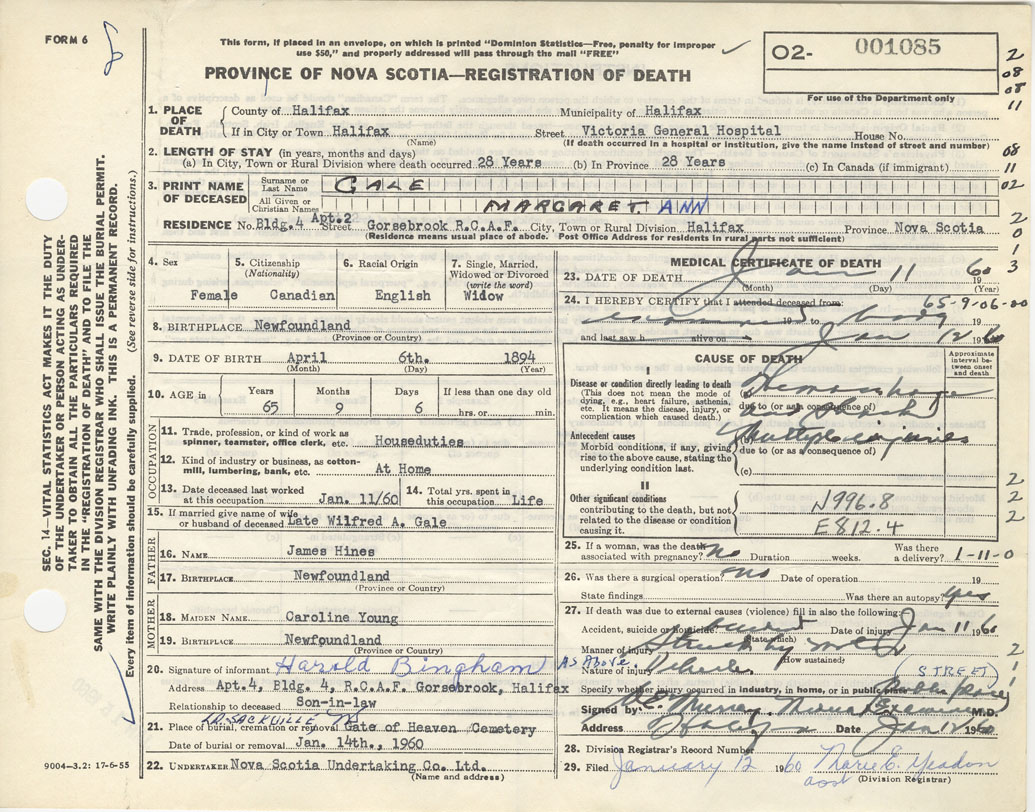 FORM 6
This form, if placed in an envelope, on which is printed "Dominion Statistics—Free, penalty for improper
use $50," and properly addressed will pass through the mail "FREE"
02- 001085
For use of the Department only
PROVINCE OF NOVA SCOTIA—REGISTRATION OF DEATH
1. PLACE OF DEATH
County of Halifax Municipality of Halifax
If in City or Town Halifax Street Victoria General Hospital House No.
(Name) (If death occurred in a hospital or institution, give the name instead of street and number)
2. LENGTH OF STAY (in years, months and days)
(a) In City, Town or Rural Division where death occurred 28 Years (b) In Province 28 Years (c) In Canada (if immigrant)
3. PRINT NAME OF DECEASED
Surname or Last Name GALE
All Given or Christian Names MARGARET ANN
RESIDENCE No. Bldg. 4 Apt. 2 Street Gorsebrook R.C.A.F. City, Town or Rural Division Halifax Province Nova Scotia
(Residence means usual place of abode. Post Office Address for residents in rural parts not sufficient)
4. Sex Female
5. Citizenship (Nationality) Canadian
6. Racial Origin English
7. Single, Married, Widowed or Divorced (write the word) Widow
8. BIRTHPLACE Newfoundland
(Province or Country)
9. DATE OF BIRTH April 6th. 1894
(Month) (Day) (Year)
10. AGE in Years 65 Months 9 Days 6 If less than one day old hrs. or min.
OCCUPATION
11. Trade, profession, or kind of work as spinner, teamster, office clerk, etc. Houseduties
12. Kind of industry or business, as cotton-mill, lumbering, bank, etc. At Home
13. Date deceased last worked at this occupation Jan. 11/60
14. Total yrs. spent in this occupation Life
15. If married give name of wife or husband of deceased Late Wilfred A. Gale
FATHER
16. NAME James Hines
17. BIRTHPLACE Newfoundland
(Province or Country)
MOTHER
18. MAIDEN NAME Caroline Young
19. BIRTHPLACE Newfoundland
(Province or Country)
20. Signature of informant Harold Bingham As Above.
Address Apt. 4, Bldg. 4, R.C.A.F. Gorsebrook, Halifax
Relationship to deceased Son-in-law
21. Place of burial, cremation or removal SACKVILLE Gate of Heaven Cemetery
Date of burial or removal Jan. 14th., 1960
22. UNDERTAKER Nova Scotia Undertaking Co. Ltd.
(Name and address)
MEDICAL CERTIFICATE OF DEATH
23. DATE OF DEATH Jan 11 60
(Month) (Day) (Year)
65-9-06-00
24. I HEREBY CERTIFY that I attended deceased from:
19 to 19
and last saw h alive on Jan 12 19
CAUSE OF DEATH
Approximate interval between onset and death
I
Disease or condition directly leading to death
(This does not mean the mode of dying, e.g., heart failure, asthenia, etc. It means the disease, injury, or complication which caused death.)
Hemorrhage
due to (or as a consequence of)
Shock
Antecedent causes
Morbid conditions, if any, giving rise to the above cause, stating the underlying condition last.
(b) Multiple injuries
due to (or as a consequence of)
(c)
II
Other significant conditions contributing to the death, but not related to the disease or condition causing it.
N996.8
E812.4
25. If a woman, was the death associated with pregnancy? No Duration weeks. Was there a delivery? 1-11-0
26. Was there a surgical operation? no Date of operation 19
State findings Was there an autopsy? yes
27. If death was due to external causes (violence) fill in also the following:
Accident, suicide or homicide Accident Date of injury Jan 11 1960
(State which)
Manner of injury Struck by motor
(How sustained)
Nature of injury Vehicle. (STREET)
Specify whether injury occurred in industry, in home, or in public place Public place
Signed by Murray Medical Examiner M.D.
Address Date Jan 12 1960
28. Division Registrar's Record Number
29. Filed January 12 1960 Marie E.
(Division Registrar)
SEC. 14—VITAL STATISTICS ACT MAKES IT THE DUTY
OF THE UNDERTAKER OR PERSON ACTING AS UNDER-
TAKER TO OBTAIN ALL THE PARTICULARS REQUIRED
IN THE "REGISTRATION OF DEATH" AND TO FILE THE
SAME WITH THE DIVISION REGISTRAR WHO SHALL ISSUE THE BURIAL PERMIT.
WRITE PLAINLY WITH UNFADING INK. THIS IS A PERMANENT RECORD.
Every item of information should be carefully supplied. (See reverse side for instructions.)
9004-3.2: 17-6-55
2
08
08
11
08
11
02
2
0
1
3
2
2
2
2
1
2